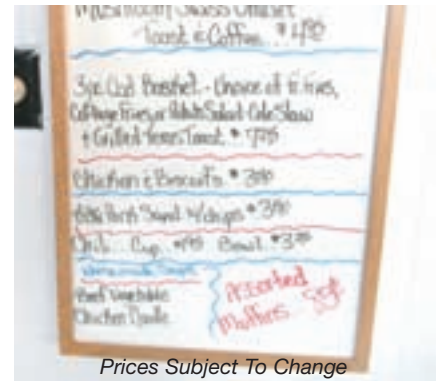 Mushroom Swiss Omelet
Toast & Coffee
3pc Cod Basket - Choice of fr. fries,
Cottage Fries, or Potato Salad Cole Slaw
& Grilled Texas Toast
Chicken & Biscuits
Pork Sand w/chips
Chili Cup Bowl
Homemade Soups
Beef Vegetable
Chicken Noodle
Assorted
Muffins
Prices Subject To Change